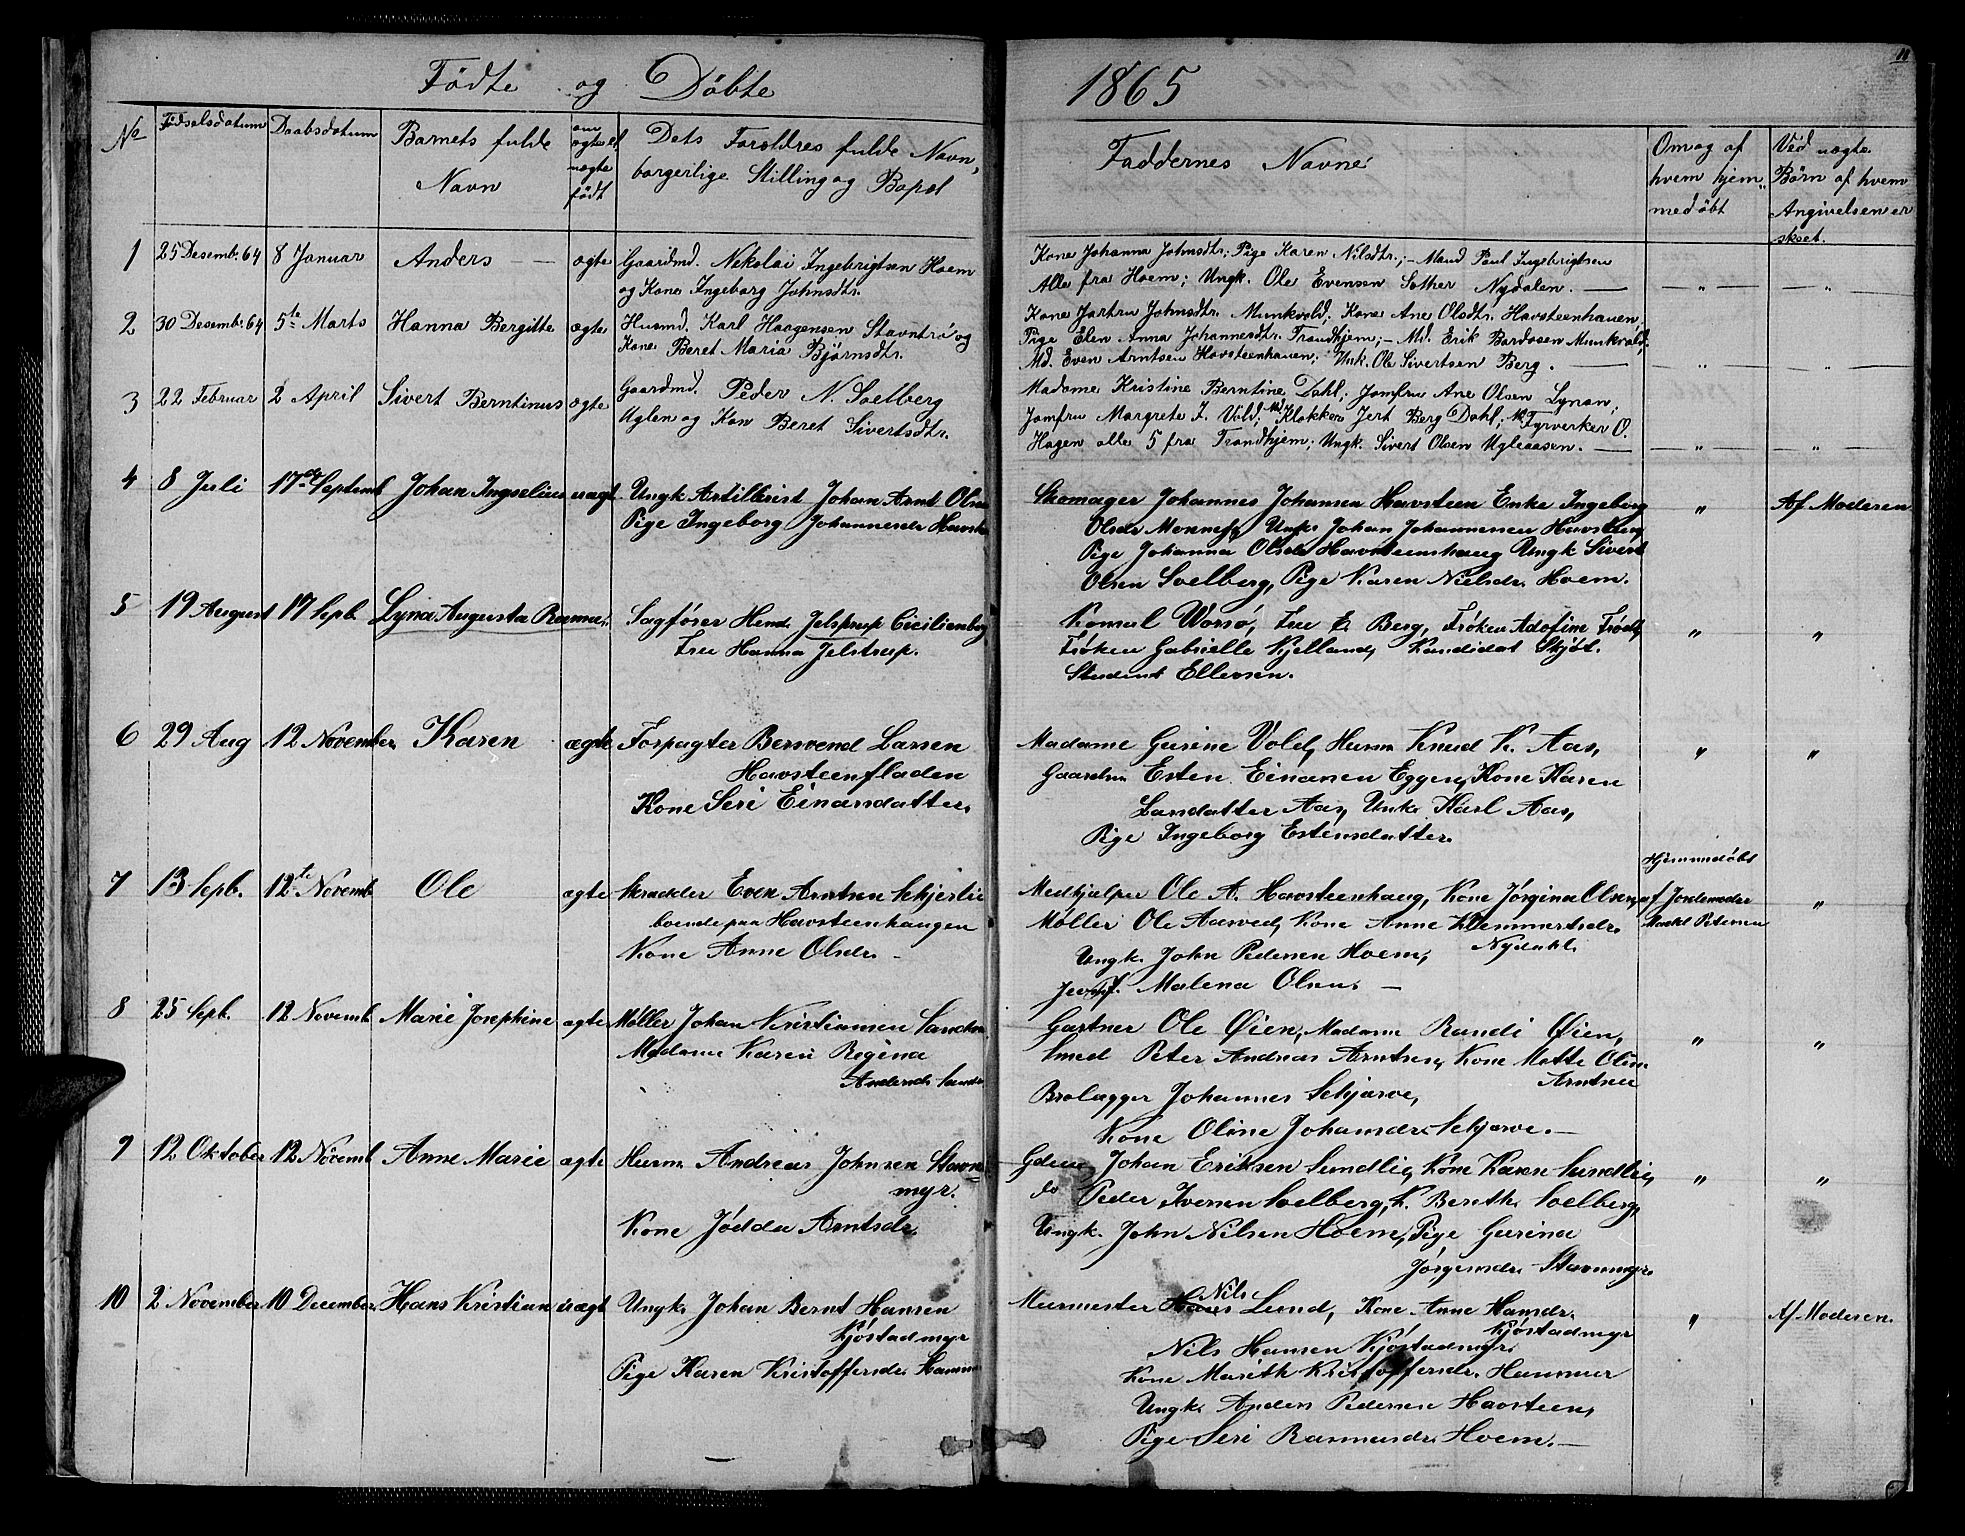 Fødte og Døbte
1865
11
No
Fødselsdatum
Daabsdatum
Barnets fulde
Navn
om
ægte el
uægte
født
Dets Forældres fulde Navn,
borgerlige Stilling og Bopæl
Faddernes Navne
Om og af
hvem hjem„
medøbt
Ved uægte
Børn af hvem
Angivelsen er
skeet.
1 25 Desemb. 64 8 Januar Anders — ægte Gaardmd. Nekolai Ingebrigtsen Hoem
og Kone Ingeborg Johnsdtr.
Kone Johanna Johnsdtr; Pige Karen Nilsdtr.; - Mand Paul Ingebrigtsen
Alle fra Hoem; Ungk. Ole Evensen Sother Nydalen. — — " — "
2 30 Desemb. 64 5te Marts Hanna Bergitte ægte Husmd. Karl Haagensen Stavntrø og
Kone Beret Maria Bjørnsdtr.
Kone Jartru Johnsdtr. Munkvold; Kone Ane Olsdtr. Havsteenhauen,
Pige Elen Anna Johannesdtr. Trondhjem; - Md. Erik Bardosen Munkvold;
Md. Even Arntsen Havsteenhauen; Unk. Ole Sivertsen Berg. — — " — "
3 22 Februar 2 April Sivert Berntinus ægte Gaardmd. Peder N. Solberg
Uglen og Kon Beret Sivertsdtr.
Madame Kristine Berntine Dahl; Jomfru Ane Olsen Lynan;
Jomfru Margrete F. Vold; Md Klokker Jert Berg Dahl; Md Fyrverker O.
Hagen alle 5 fra Trondhjem; Ungk. Sivert Olsen Ugleaasen. — — " — "
4 8 Juli 17de Septemb Johan Ingselius uægt Ungk Artillerist Johan Arnt Olsen
Pige Ingeborg Johannesdr Havsten
Skomager Johannes Johansen Havsteen Enke Ingeborg " Af Moderen
Olsdr Ungk Johan Johannesen Havsteen
Pige Johanna Olsdr Havsteenshaug Ungk Sivert
Olsen Solberg, Pige Karen Nielsdr. Hoem.
5 19 August 17 Sepb. Lyna Augusta Sagfører Hend. Jelstrup Cicilienborg
Fru Hanna Jelstrup.
Konsul Worsø, Fru E. Berg, Frøken Adofine " "
Frøken Gabrielle Kjelland, Kandidat Skjøt.
Student Ellevsen.
6 29 Aug 12 November Karen ægte Forpagter Bersvend Larsen
Havsteenfladen
Kone Seri Einarsdatter.
Madame Gurine Vold, Husm Knud K. Aas, " "
Gaardm Esten Einarsen Eggen, Kone Karen
Larsdatter Aas, Unk. Karl Aas,
Pige Ingeborg Estensdatter.
7 13 Sepb. 12te Novemb Ole ægte Skrædder Even Arntsen Schjerlie
boende paa Havsteenhaugen
Kone Anne Olsdr. -
Medhjælper Ole A. Havsteenhaug, Kone Jørgina Olsen,
Møller Ole Aasved, Kone Anne Klemmertsdr.
Nydahl.
Ungk. John Pedersen Hoem,
Jomf. Malena Olsen. —
Hjemmedøbt
af Jordemoder
Petersen
"
8 25 Sepb. 12 Novemb. Marie Josephine ægte Møller Johan Kristiansen
Madame Karen Regina
Gartner Ole Øien, Madame Randi Øien, " "
Smed Peter Andreas Arntsen, Kone Mette Olsen
Arntsen
Brolægger Johannes Schjærve,
Kone Oline Johansdr. Schjærve. —
9 12 Oktober 12 Novemb Anne Marie ægte Husm Andreas Johnsen Stavne
myr.
Kone Jødda Arntsdr.
Gdm Johan Eriksen Sundlie, Kone Karen Sundlie, " "
do Peder Iversen Solberg, K. Bereth Solberg,
Ungk. John Nilsen Hoem, Pige Gurina
Jørgensdr. Stavnmyr.
10 2 November 10 December Hans Kristian uægt Ungk. Johan Bernt Hansen
Kjøstadmyr
Pige Karen Kristoffersdr. Hammer
Murmester Nils Lund, Kone Anne Hansdr. " Af Moderen.
Kjøstadmyr
Nils Hansen Kjøstadmyr,
Kone Marith Kristoffersdr. Hammer
Ungk. Anders Pedersen Havsteen,
Pige Seri Rasmusdr. Hoem. —